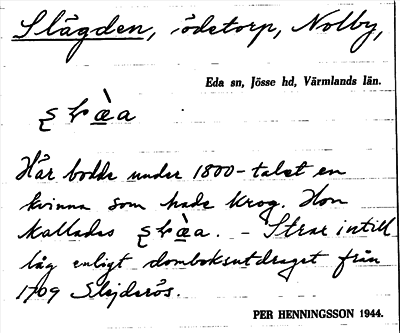 Slågden, ödetorp, Nolby,
Eda sn, Jösse hd, Värmlands län.
Här bodde under 1800-talet en
kvinna som hade krog. Hon
kallades. - Strax intill
låg enligt domboksutdraget från
1709 Slejdarös.
PER HENNINGSSON 1944.